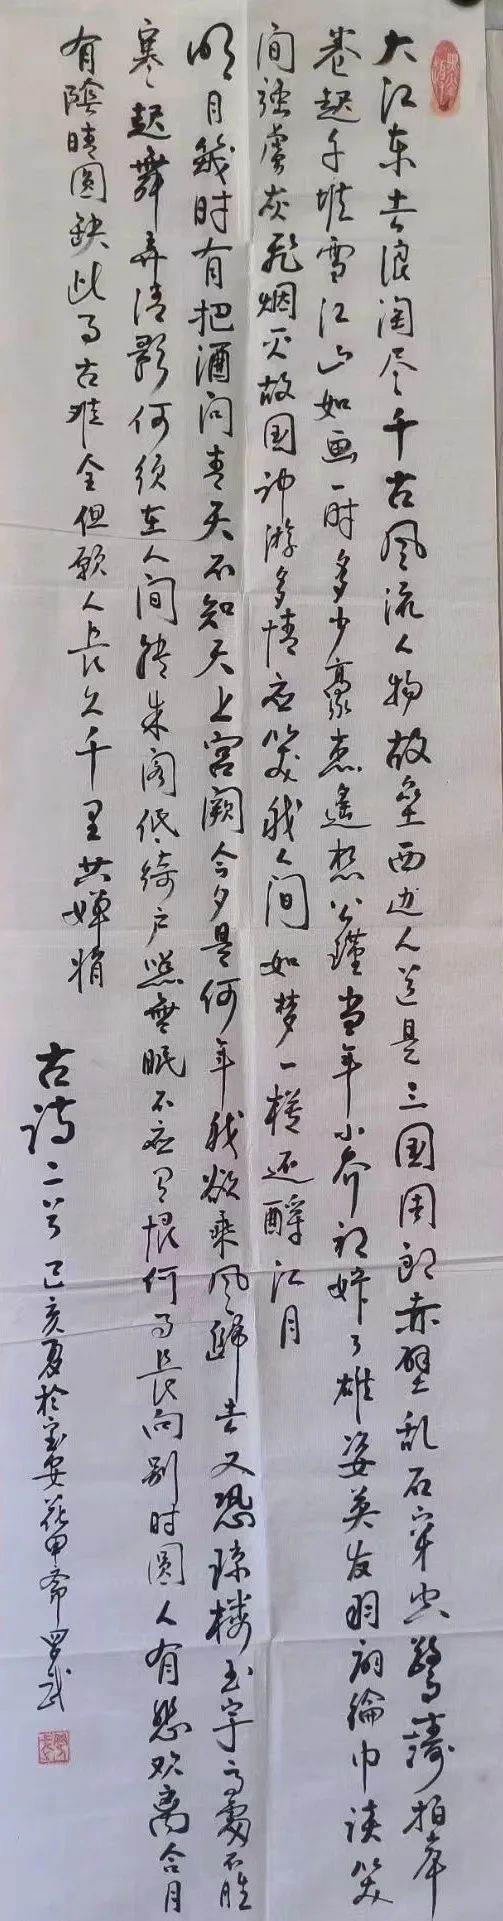 大江东去浪淘尽千古风流人物故垒西边人道是三国周郎赤壁乱石穿空惊涛拍岸
卷起千堆雪江山如画一时多少豪杰遥想公瑾当年小乔初嫁了雄姿英发羽扇纶巾谈笑
间强虏灰飞烟灭故国神游多情应笑我人间如梦一樽还酹江月
明月几时有把酒问青天不知天上宫阙今夕是何年我欲乘风归去又恐琼楼玉宇高处不胜
寒起舞弄清影何须在人间转朱阁低绮户照无眠不应有恨何事长向别时圆人有悲欢离合月
有阴晴圆缺此事古难全但愿人长久千里共婵娟
古诗二首 己亥夏於宝安花甲斋罗武